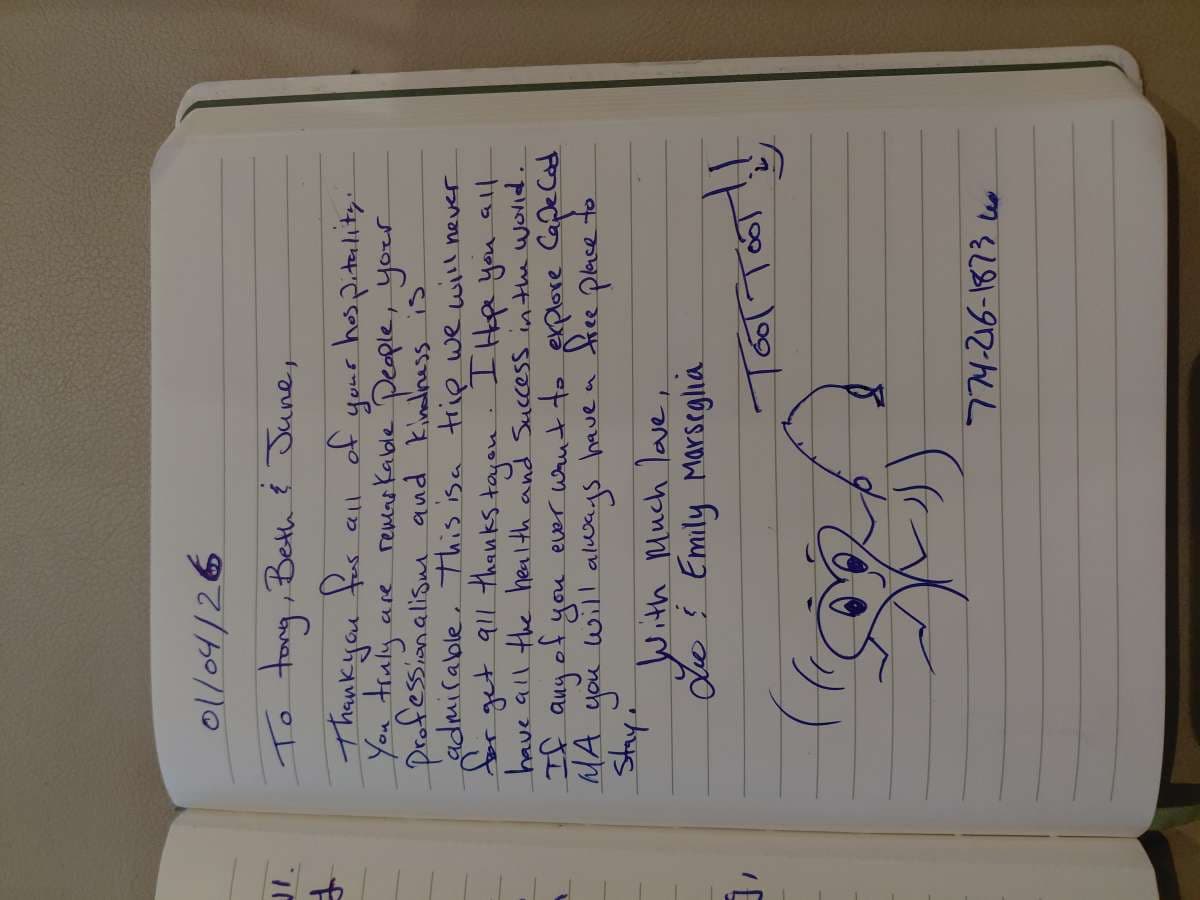 01/04/26
To tony, Beth & June,
Thankyou for all of your hospitality.
You truly are remarkable People, your
Professionalism and kindness is
admirable. This is a trip we will never
forget all thanks to you. I Hope you all
have all the health and success in the world.
If any of you ever want to explore Cape Cod
MA you will always have a free place to
stay.
With Much love,
Leo & Emily Marseglia
TooT TooT!!
774-216-1873